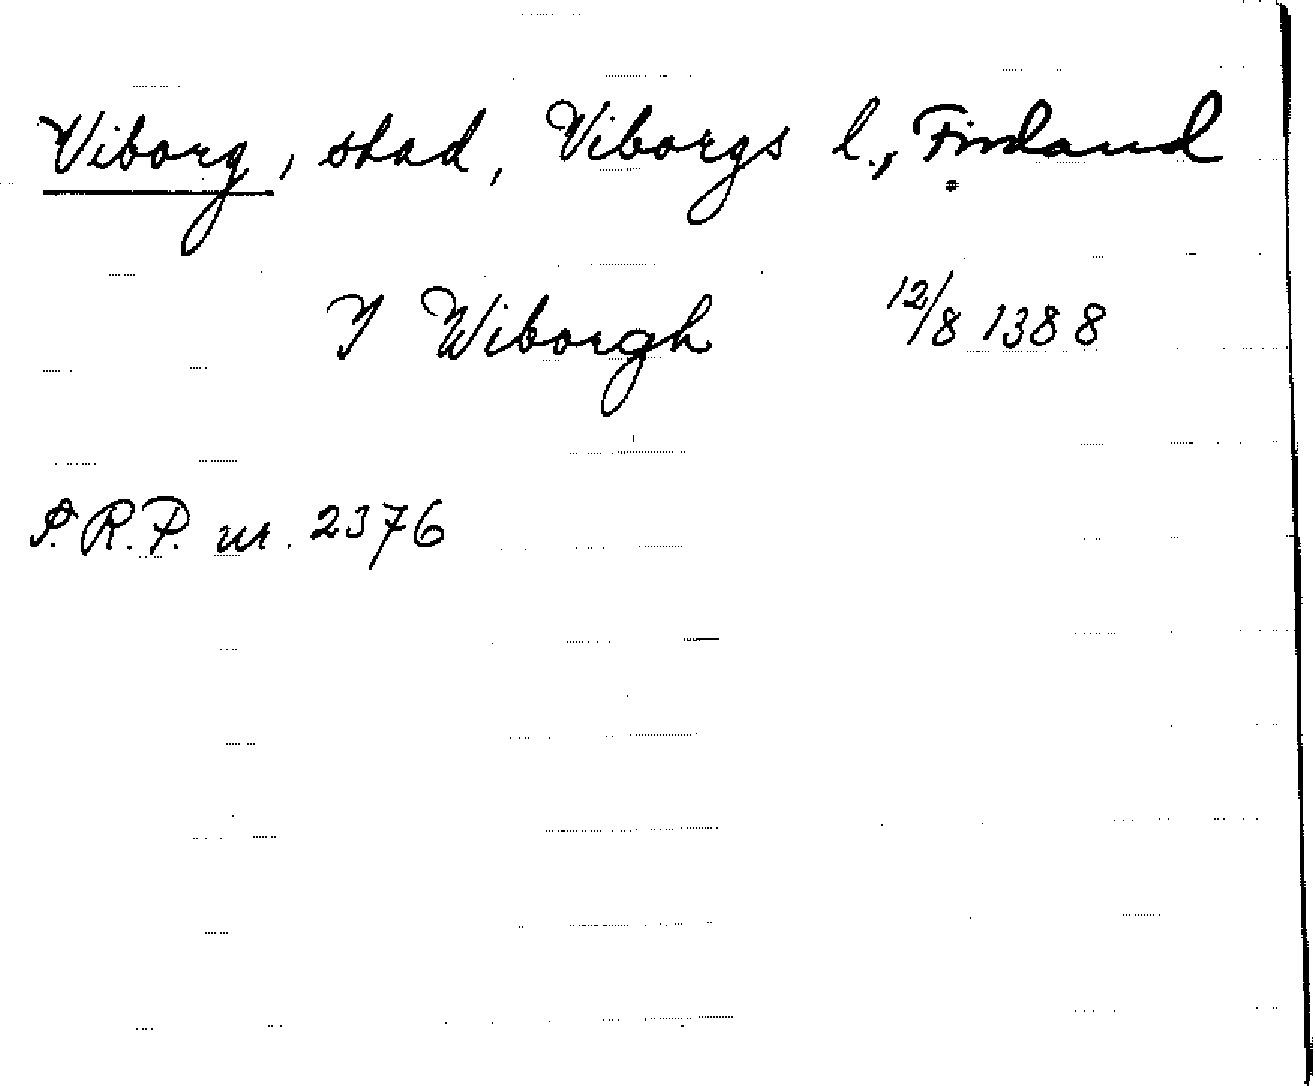 Viborg, stad, Viborgs l., Finland
Y Wiborgh 12/8 1388
S.R.P. nr. 2376